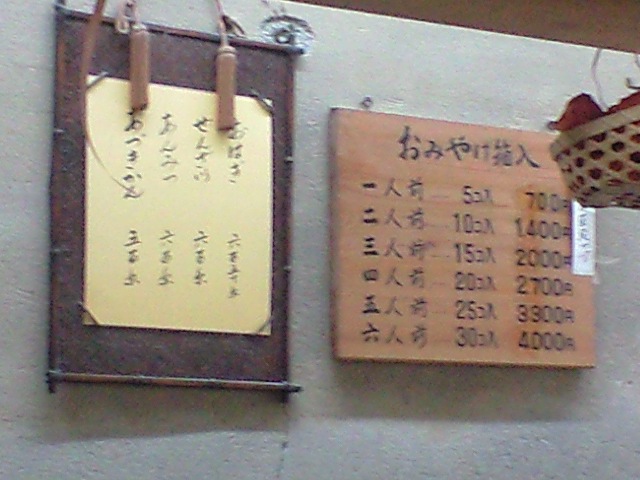 おはぎ 六百五十円
せんざい 六百円
あんみつ 六百円
あづきかん 五百円
おみやげ箱入
一人前 5コ入 700円
二人前 10コ入 1,400円
三人前 15コ入 2000円
四人前 20コ入 2700円
五人前 25コ入 3300円
六人前 30コ入 4,000円